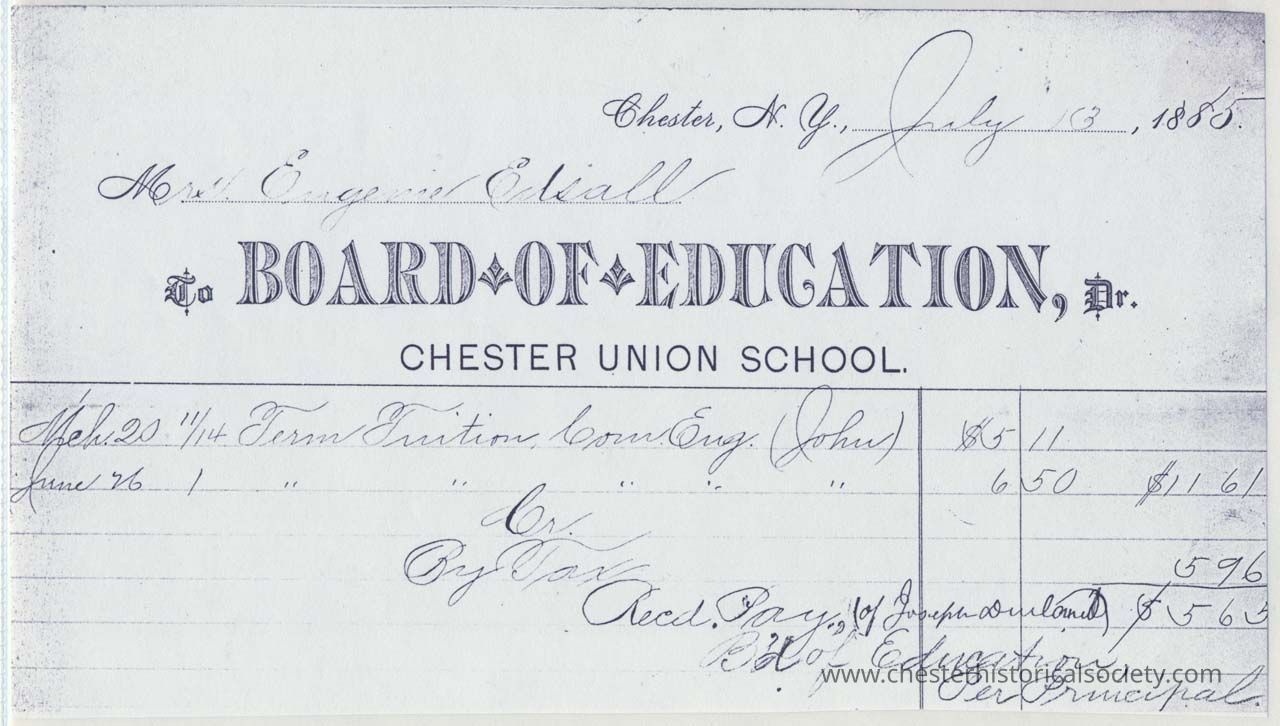 Chester, N. Y., July 13, 1885.
Mrs. Eugenie Edsall
To BOARD OF EDUCATION, Dr.
CHESTER UNION SCHOOL.
Mch. 20 11/14 Term Tuition, Com. Eng. (John) $5 11
June 26 1 " " " " " 6 50 $11 61
Cr.
By Tax 5 96
Recd. Pay., (of Joseph Durland) $ 5 65
Bd of Education,
www.chesterhistoricalsociety.com
Per Principal.